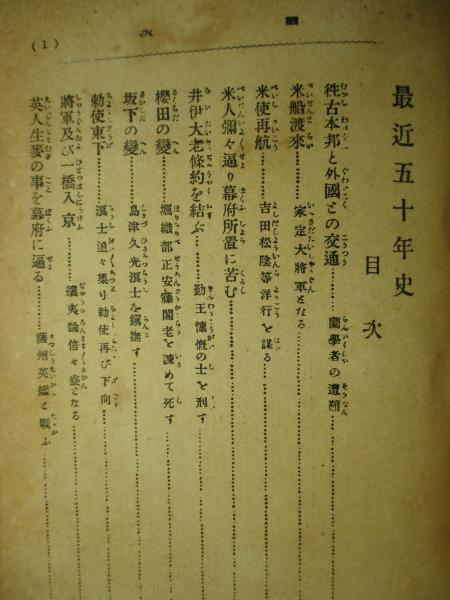 最近五十年史
目次
往古本邦と外國との交通………蘭學者の遭難
米船渡來………家定大將軍となる
米使再航………吉田松陰等洋行を謀る
米人彌々逼り幕府所置に苦む
井伊大老條約を結ぶ………勤王慷慨の士を刑す
櫻田の變………堀織部正安藤閣老を諫めて死す
坂下の變………島津久光浪士を鎭撫す
勅使東下………浪士追々集り勅使再び下向
將軍及び一橋入京………攘夷論倍々盛となる
英人生麥の事を幕府に逼る………薩州英艦と戰ふ
(1)
目次